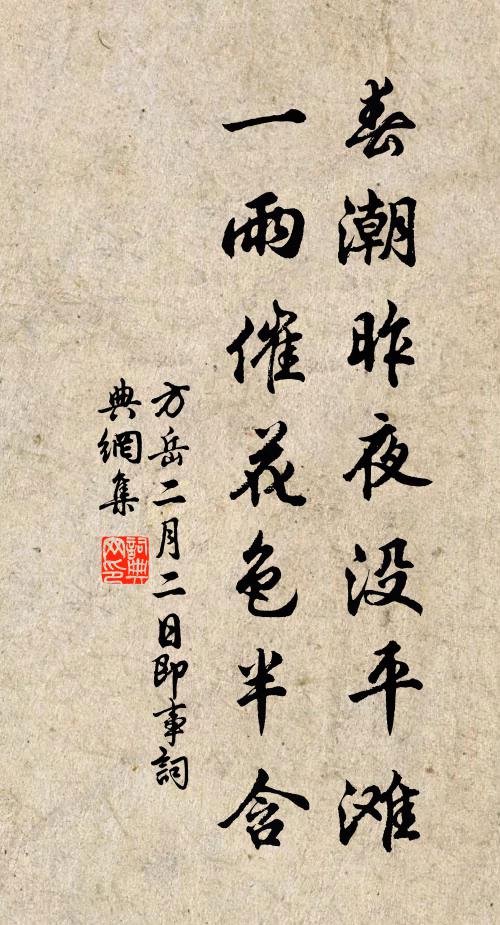 春潮昨夜没平滩
一雨催花色半含
方岳二月二日即事詞
典網集
詞典网印